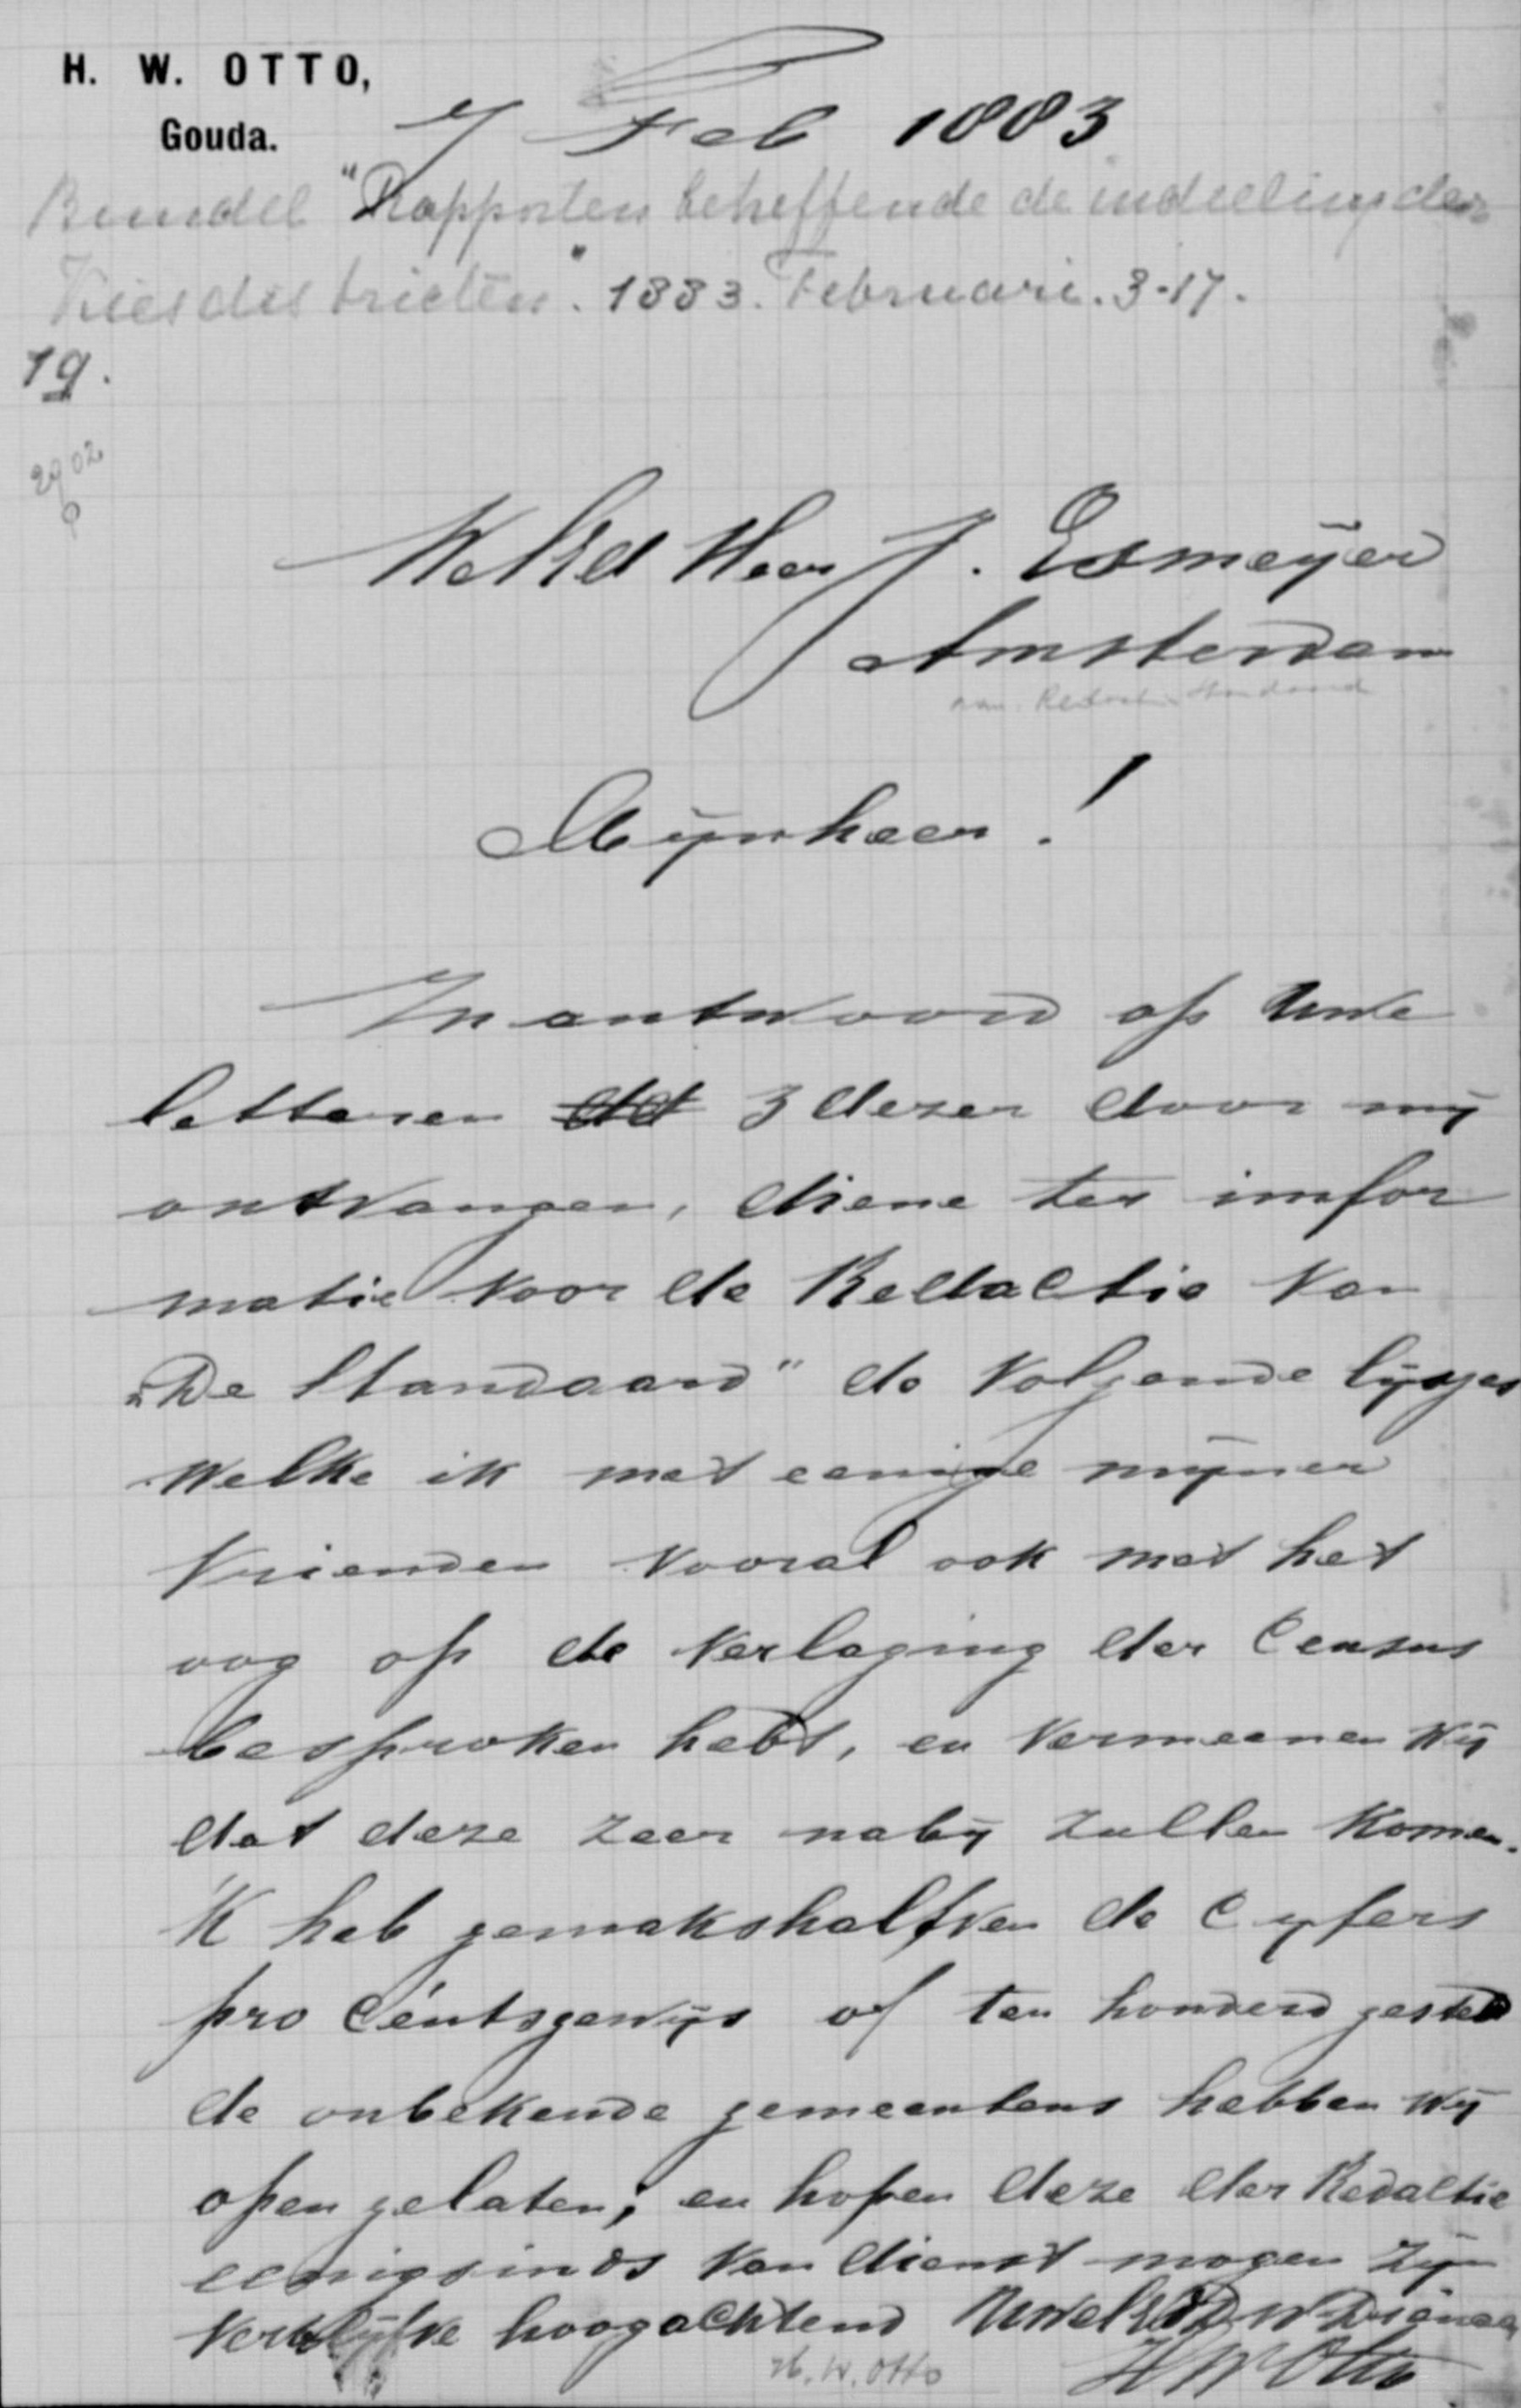 H. W. OTTO,
Gouda.
7 Feb 1883
Bundel "Rapporten betreffende de indeeling der
Kiesdistricten". 1883. Februari. 3-17.
19.
WelEd Heer J. Esmeijer
Amsterdam
Redactie Standaard
Mijnheer!
In antwoord op Uwe
letteren dd 3 dezer door mij
ontvangen, diene ter imfor
matie voor de Redactie van
„De Standaard" de volgende lijstjes
welke ik met eenige mijner
vrienden vooral ook met het
oog op de verlaging der Census
besproken hebt, en vermeenen wij
dat deze zeer nabij zullen komen.
'K heb gemakshalfven de Cyfers
pro Céntsgewijs of ten honderd gesteld
de onbekende gemeentens hebben wij
open gelaten; en hopen deze der Redaltie
eenigsinds van dienst mogen zijn
Verblijfve hoogachtend UwelEd Dw Dienaar
H. W. Otto
HW Otto